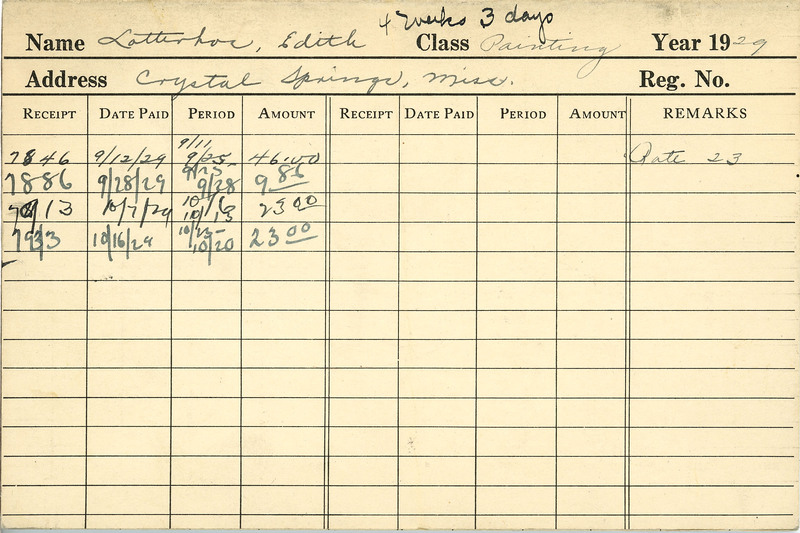 4 weeks 3 days
Name Lotterhos, Edith Class Painting Year 1929
Address Crystal Springs, Miss. Reg. No.
RECEIPT DATE PAID PERIOD AMOUNT RECEIPT DATE PAID PERIOD AMOUNT REMARKS
9/11
7846 9/12/29 9/25 46.00 Rate 23
9/25
7886 9/28/29 9/28 9.86
13 10/7/29 10/13 23.00
7933 10/16/29 10/20 23.00